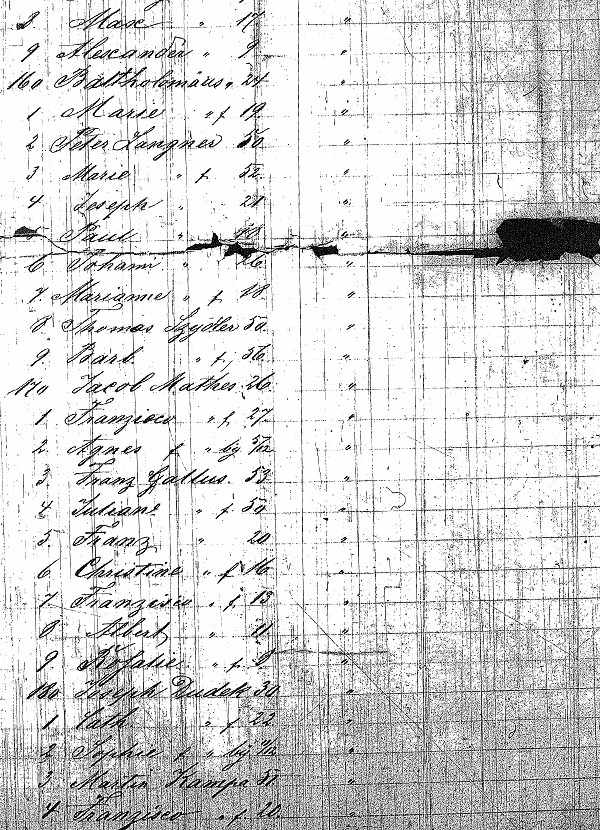 8 Max " 17 "
9 Alexander " 9 "
160 Bartholomäus " 24 "
1 Marie " f 19 "
2 Peter Langner 50 "
3 Marie " f 52 "
4 Joseph " 21 "
Paul " "
6 Johann " 26 "
7. Marianne " f 18 "
8. Thomas Szydler 50 "
9. Barb. " f. 56 "
170 Jacob Mathes. 26 "
1. Franzisca " f. 27 "
2. Agnes f " "
3. Franz Gallus. 53 "
4. Juliane " f. 50 "
5. Franz " 20 "
6. Christine " f 16 "
7. Franzisca " f. 13 "
8. Albert " 11 "
9 Rosalie " f. 8 "
180 Joseph Dudek 30 "
1 Cath. " f 22 "
2 Sophie f " "
3. Martin Kampa 51 "
4 Franzisca " f 20 "